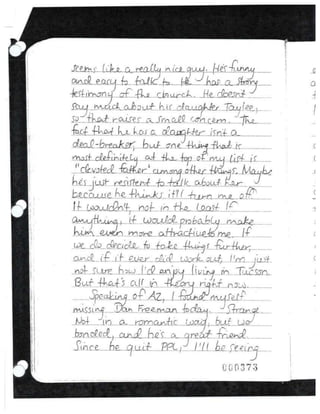 seems like a really nice guy. He's funny
and easy to talk to. He has a strong
testimony of the church. He doesn't
say much about his daughter Taylee,
so that raises a small concern. The
fact that he has a daughter isn't a
deal-breaker, but one thing that is
most definitely at the top of my list is
"devoted father" among other things. Maybe
he's just resistent to talk about her
because he thinks it'll turn me off.
It wouldn't, not in the least. If
anything, it would probably make
him even more attractive to me. If
we do decide to take things further,
and if it ever did work out, I'm just
not sure how I'd enjoy living in Tucson.
But that's all in theory right now.
Speaking of AZ, I found myself
missing Dan Freeman today. Strange.
Not in a romantic way, but we
bonded, and he's a great friend.
Since he quit PPL, I'll be seeing
000373